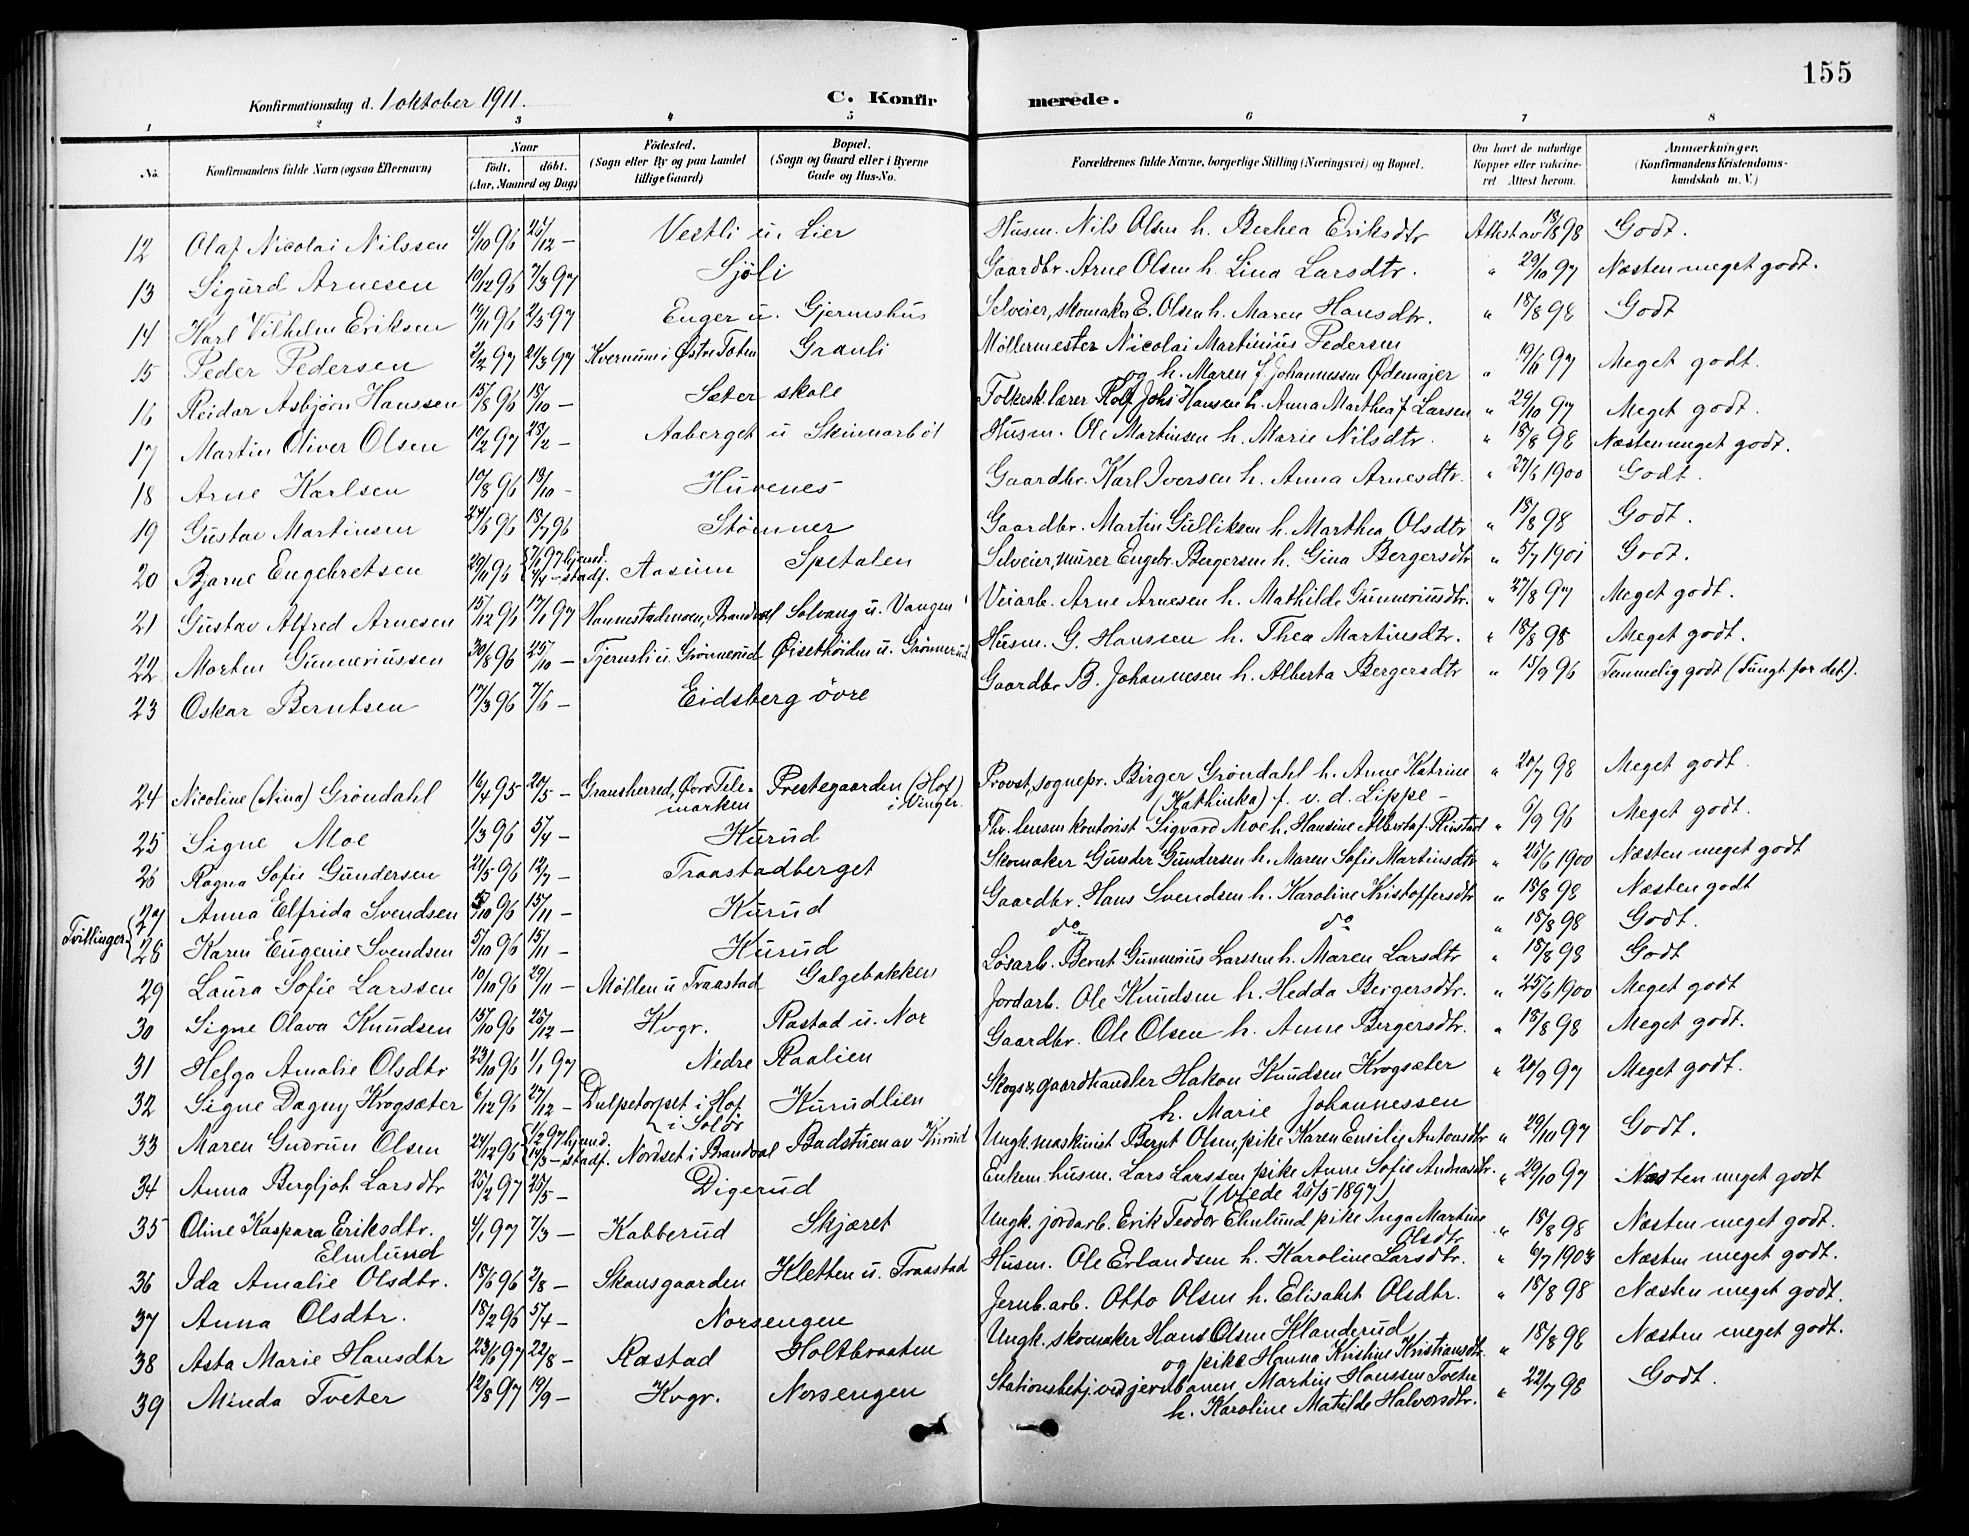 155
Konfirmationsdag d. 1 oktober 1911. C. Konfirmerede.
1 2 3 4 5 6 7 8
No. Konfirmandens fulde Navn (ogsaa Efternavn) Naar født. døbt. (Aar, Maaned og Dag) Fødested. (Sogn eller By og paa Landet tillige Gaard) Bopæl. (Sogn og Gaard eller i Byerne Gade og Hus-No. Forældrenes fulde Navne, borgerlige Stilling (Næringsvei) og Bopæl. Om havt de naturlige Kopper eller vaccineret Attest herom. Anmærkninger. (Konfirmandens Kristendomskundskab m. V.)
12 Olaf Nicolai Nilssen 4/10 96 26/12 – Vestli u. Lier Husm. Nils Olsen h. Berhea Eriksdtr Attest av 18/8 98 Godt.
13 Sigurd Arnesen 10/12 96 7/3 97 Sjöli Gaardbr. Arne Olsen h. Lina Larsdtr. " 29/10 97 Næsten meget godt.
14 Karl Vilhelm Eriksen 17/11 96 2/5 97 Enger u. Gjermshus Selveier, skomaker E. Olsen h. Maren Hansdtr. " 18/8 98 Godt
15 Peder Pedersen 2/2 97 21/3 97 Kvernum i Østre Toten Granli Möllermester Nicolai Martinius Pedersen
og h. Maren f. Johannessen Ødemajer " 19/6 97 Meget godt.
16 Reidar Asbjørn Hanssen 15/8 96 18/10 – Sæter skole Folkesk.lærer Rolf Johs Hansen h. Anna Marthea f Larsen " 29/10 97 Meget godt.
17 Martin Oliver Olsen 17/2 97 28/2 – Aaberget u Skinnarbøl Husm. Ole Martinsen h. Marie Nilsdtr. " 18/8 98 Næsten meget godt.
18 Arne Karlsen 10/8 96 18/10 – Huvenes Gaardbr. Karl Iversen h. Anna Arnesdtr. " 27/6 1900 Godt.
19 Gustav Martinsen 24/5 96 18/7 96 Stömner Gaardbr. Martin Gulliksen h. Marthea Olsdtr " 18/8 98 Godt.
20 Bjarne Engebretsen 29/11 96 7/1 97 hjemd. 4/4 – stadf. Aasum Spetalen Selveier, murer Engebr. Bergersen h. Gina Bergersdtr " 5/7 1901 Godt.
21 Gustav Alfred Arnesen 15/12 96 17/1 97 Hannestadmoen, Brandval Solvang u. Vangen Veiarb. Arne Arnesen h. Mathilde Gunneriusdtr. " 27/8 97 Meget godt.
22 Morten Gunneriussen 30/8 96 25/10 – Tjernsli u. Grönnerud Öisethöiden u. Grönnerud Husm. G. Hanssen h. Thea Martinsdtr. " 18/8 98 Meget godt.
23 Oskar Berntsen 17/3 96 7/6 – Eidsberg övre Gaardbr B. Johannesen h. Alberta Bergersdtr " 15/9 96 Temmelig godt (Tungt for det).
24 Nicoline (Nina) Gröndahl 16/4 95 20/5 – Gransherred, Övre Telemarken Prestegaarden (Hof) i Vinger. Provst, sognepr. Birger Gröndahl h. Anne Katrine
(Kathinka) f. v. d. Lippe – " 20/7 98 Meget godt.
25 Signe Moe 1/3 96 5/4 – Kurud Fhv. lensm.kontorist Sigvard Moe h. Hansine Alberta f. Rinstad " 5/9 96 Meget godt.
26 Ragna Sofie Gundersen 21/5 96 12/7 – Traastadberget Skomaker Gunder Gundersen h. Maren Sofie Martinsdtr " 25/6 1900 Næsten meget godt
Tvillinger
27 Anna Elfrida Svendsen 5/10 96 15/11 – Kurud Gaardbr. Hans Svendsen h. Karoline Kristoffersdtr " 18/8 98 Næsten godt
28 Karen Eugenie Svendsen 5/10 96 15/11 – Kurud do do " 18/8 98 Godt.
29 Laura Sofie Larssen 10/10 96 29/11 – Möllen u Traastad Galgebakken Lösarb. Bernt Gunnerius Larssen h. Maren Larsdtr " 18/8 98 Godt
30 Signe Olava Knudsen 15/10 96 26/12 – Kvgr. Rastad u. Nor Jordarb. Ole Knudsen h. Hedda Bergersdtr. " 25/6 1900 Meget godt
31 Helga Amalie Olsdtr 23/10 96 1/1 97 Nedre Raalien Gaardbr. Ole Olsen h. Anne Bergersdtr. " 18/8 98 Meget godt.
32 Signe Dagny Krogsæter 6/12 96 27/12 – Dulpetorpet i Hof i Solör Kurudlien Skogs & gaardhandler Hakon Knudsen Krogsæter
h. Marie Johannessen " 20/9 97 Meget godt.
33 Maren Gudrun Olsen 24/12 96 1/2 97 hjemd. 14/3 – stadf. Nordset i Brandval Badstuen av Kurud Ungk. maskinist Bernt Olsen, pike Karen Emilie Antonsdtr " 29/10 97 Godt.
34 Anna Bergljot Larsdtr 25/2 97 25/5 – Digerud Enkem. husm. Lars Larssen pike Anne Sofie Andreasdtr.
(viede 25/5 1897) " 29/10 97 Næsten meget godt
35 Oline Kaspara Eriksdtr. Elmlund 4/1 97 7/3 – Kabberud Skjæret Ungk. jordarb. Erik Teodor Elmlund pike Inga Martine
Olsdtr " 18/8 98 Næsten meget godt.
36 Ida Amalie Olsdtr. 18/6 96 2/8 – Skansgaarden Kletten u. Traastad Husm. Ole Erlandsen h. Karoline Larsdtr. " 6/7 1903 Næsten meget godt.
37 Anna Olsdtr. 18/2 96 5/4 – Norsengen Jernb.arb. Otto Olsen h. Elisabet Olsdtr. " 18/8 98 Næsten meget godt.
38 Asta Marie Hansdtr 23/6 97 22/8 – Rastad Holtbraaten Ungk. skomaker Hans Olsen Klanderud
og pike Hanna Kristine Kristiansdtr. " 18/8 98 Næsten meget godt.
39 Minda Tveter 12/8 97 19/9 – Kvgr. Norsengen Stationsbetj. ved jernbanen Martin Hanssen Tveter
h. Karoline Matilde Halvorsdtr. " 22/7 98 Godt.